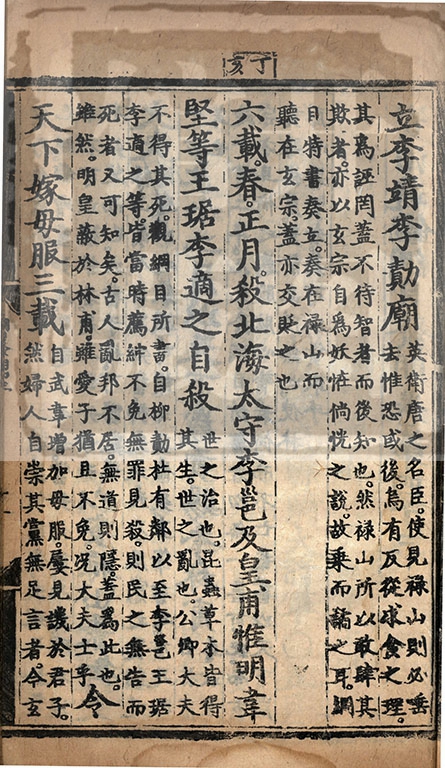 丁亥
立李靖李勣廟
英衛唐之名臣。使見祿山則必唾
去惟恐或後。焉有反從求食之理。
其為誣罔蓋不待智者而後知也。然祿山所以敢肆其
欺者。亦以玄宗自爲妖怪惝恍之說。故乘而譎之耳。綱
目特書奏立。奏在祿山而
聽在玄宗蓋亦交貶之也
六載。春。正月。殺北海太守李邕及皇甫惟明韋
堅等王琚李適之自殺
世之治也。昆蟲草木皆得
其生。世之亂也。公卿大夫
不得其死。觀綱目所書。自柳勣杜有鄰以至李邕王琚
李適之等皆當時薦紳不免無罪見殺。則民之無告而
死者又可知矣。古人亂邦不居。無道則隱。蓋爲此也。
雖然。明皇蔽於林甫。雖愛子猶且不免。况大夫士乎
令
天下嫁母服三載
自武韋增加母服。屢見譏於君子。
然婦人自崇其黨無足言者。今玄